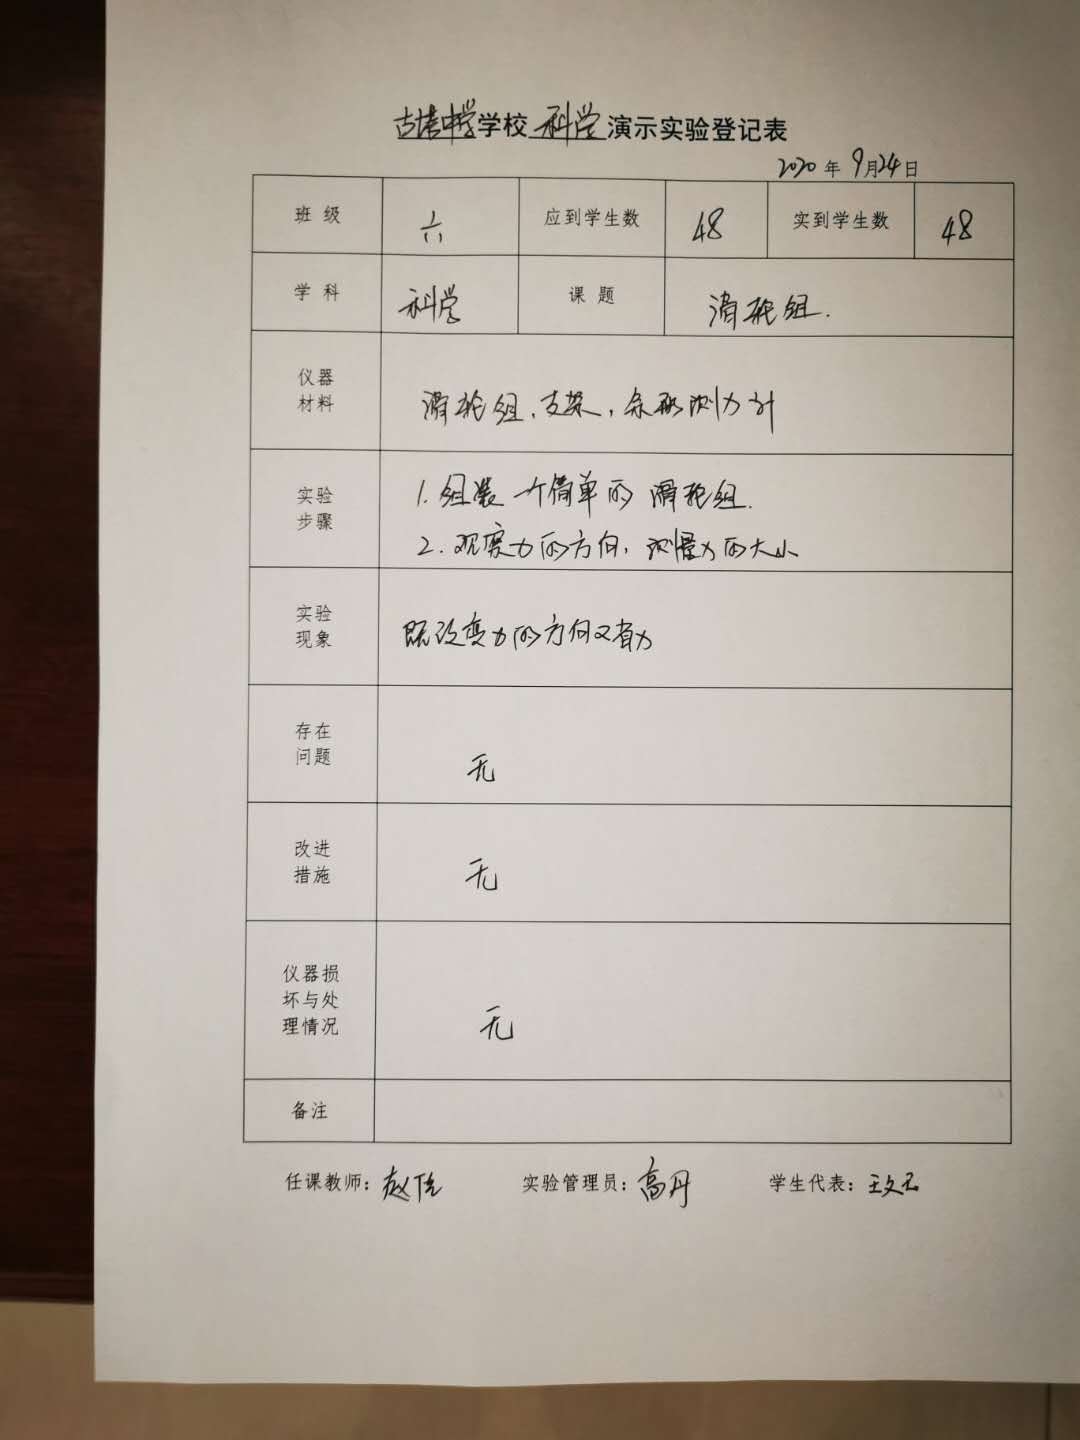 中学学校 科学 演示实验登记表
2020 年 9月24日
班 级 六 应到学生数 48 实到学生数 48
学 科 科学 课 题 滑轮组.
仪器
材料
滑轮组、支架、条形测力计
实验
步骤
1. 组装一个简单的滑轮组.
2. 观察力的方向, 测量力的大小
实验
现象
既改变力的方向又省力
存在
问题
无
改进
措施
无
仪器损
坏与处
理情况
无
备注
任课教师: 赵 实验管理员: 高丹 学生代表: 王文